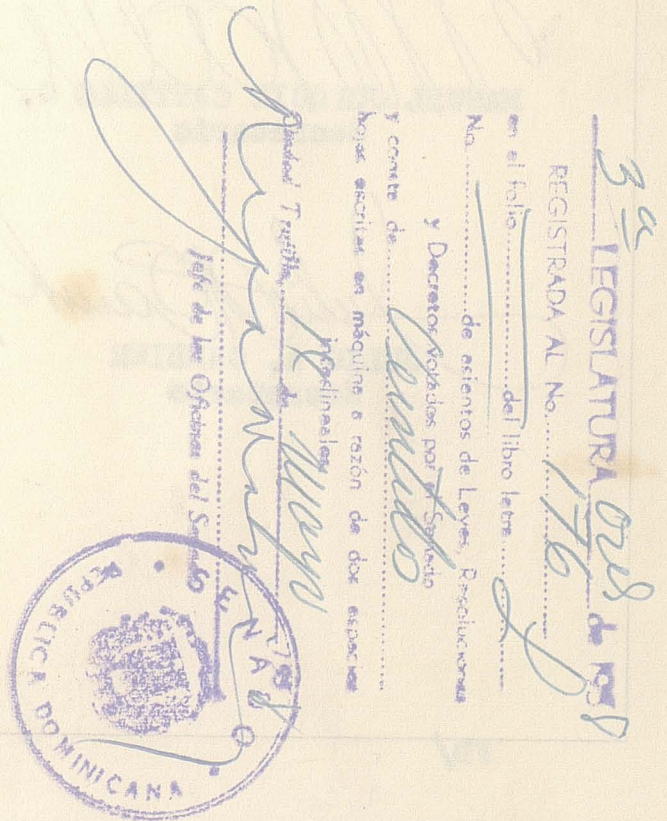 3ª LEGISLATURA Ord de 1958
REGISTRADA AL No. 176
en el folio del libro letra
No. de asientos de Leyes, Resoluciones
y Decretos votados por el Senado
y consta de
hojas escritas en máquina a razón de dos espacios
interlineales
Ciudad Trujillo, de Mayo 1958
Jefe de las Oficinas del Senado
SENADO
REPUBLICA DOMINICANA